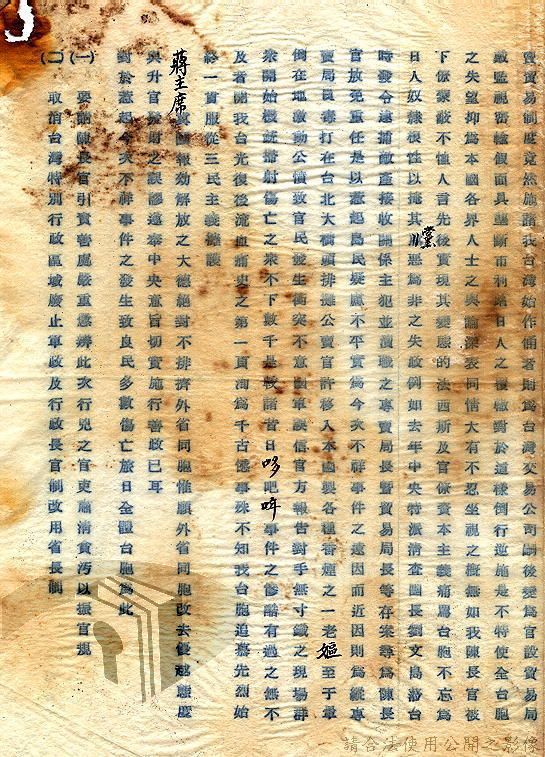 賣貿易制度竟然施諸我台灣始作俑者則為台灣交易公司嗣後變為官設貿易局
敢監視密輸假面具壟斷市利踏日人之覆轍對於這樣倒行逆施是不特使全台胞
之失望抑為本國各界人士之輿論深表同情大有不忍坐視之概無如我陳長官被
下僚蒙蔽不惟人言先後實現其變態的法西斯及官僚資本主義痛罵台胞不忘為
日人奴隸根性以掩其黨惡為非之失政例如去年中央特派清查團長劉文島蒞台
時發令逮捕敵產接收關係主犯並瀆職之專賣局長暨貿易局長等存案尋為陳長
官放免重任是以惹起島民疑慮不平實為今次不祥事件之遠因而近因則為緝專
賣局員毒打在台北大橋頭排攤公賣官許移入本國製各種香煙之一老嫗至于暈
倒在地激動公憤致官民發生衝突不意國軍誤信官方報告對手無寸鐵之現場群
眾開始機銃掃射傷亡之眾不下數千是較諸昔日哆吧哖事件之慘酷有過之無不
及者開我台光復後流血痛史之第一頁洵為千古憾事殊不知我台胞追慕先烈始
終一貫服從三民主義擁護
蔣主席冀圖報効解放之大德絕對不排濟外省同胞惟願外省同胞改去優越態度
與升官發財之誤謬遵奉中央意旨切實施行善政已耳
對於惹起今次不祥事件之發生致良民多數傷亡旅日全體台胞為此
(一) 要請陳長官引責善處嚴重懲辦此次行兇之官吏肅清貪污以振官規
(二) 取消台灣特別行政區域廢止軍政及行政長官制改用省長制
請合法使用公開之影像